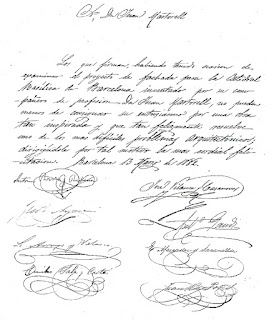 Sr. Dn. Juan Martorell
Los que firman, habiendo tenido ocasion de
examinar el proyecto de fachada para la Catedral
Basílica de Barcelona inventado por su com-
pañero de profesion Dn. Juan Martorell, no pueden
menos de consignar su entusiasmo por una obra
tan inspirada y que tan felizmente resuelve
uno de los mas difíciles problemas arquitectónicos,
dirigiéndole por tal motivo la mas cordial felici-
tacion. Barcelona 13 1882.
Antoni
José Vilaseca Casanovas
José
Gaudí
L.
E. Mercader y
Emilio Sala y Cortés